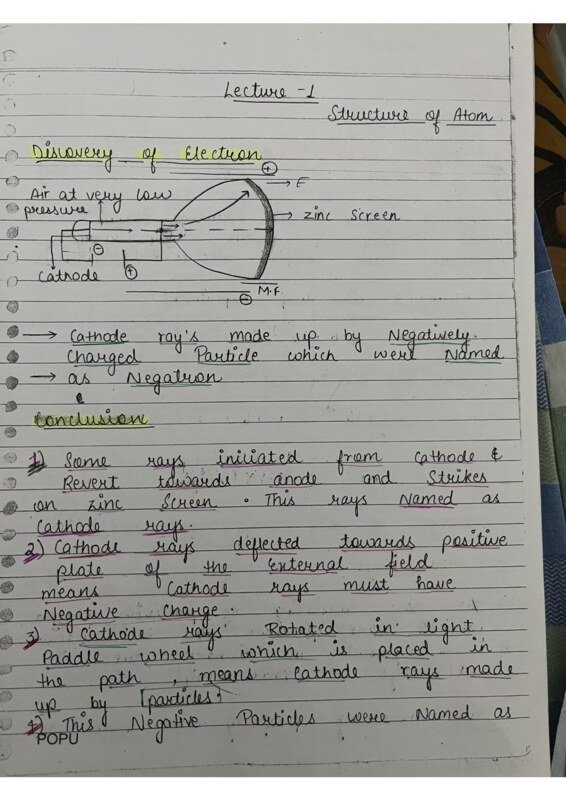 Lecture - 1
Structure of Atom
Discovery of Electron
Air at very low
pressure
+
E
zinc Screen
-
Cathode
+
-
M.F.
→ Cathode ray's made up by Negatively
Charged Particle which were Named
→ as Negatron
Conclusion
1) Some rays initiated from Cathode &
Revert towards anode and Strikes
on zinc Screen. This rays Named as
Cathode rays.
2) Cathode rays deflected towards positive
plate of the External field
means Cathode rays must have
Negative charge.
3) Cathode rays Rotated in light
Paddle wheel which is placed in
the path, means Cathode rays made
up by [particles]
4) This Negative Particles were Named as
POPU